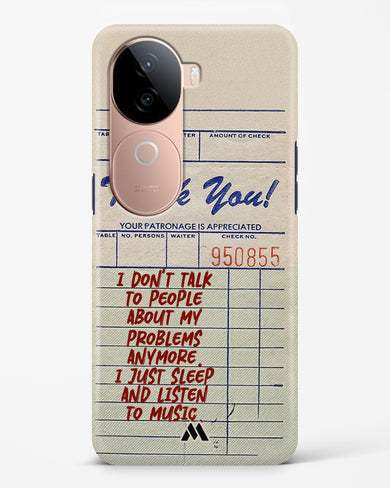 AMOUNT OF CHECK
You!
YOUR PATRONAGE IS APPRECIATED
TABLE NO. PERSONS WAITER CHECK NO.
950855
I DON'T TALK
TO PEOPLE
ABOUT MY
PROBLEMS
ANYMORE.
I JUST SLEEP
AND LISTEN
TO MUSIC